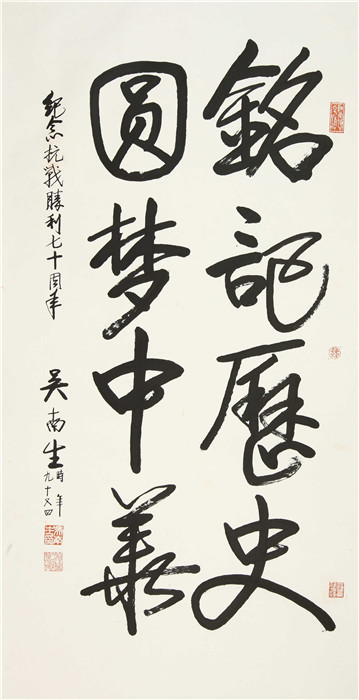 銘記歷史
圓梦中華
纪念抗战勝利七十周年
吴南生時年九十又四